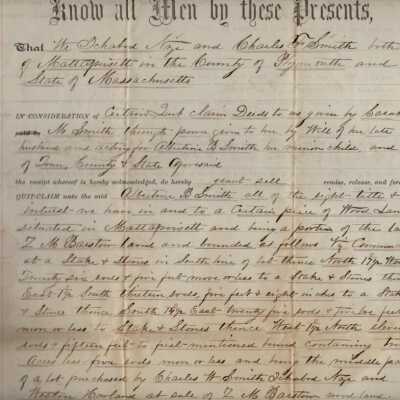 Know all Men by these Presents,
That We Ichabod Nye and Charles W Smith both
of Mattapoisett in the County of Plymouth and
State of Massachusetts
IN CONSIDERATION of Certain Quit Claim Deeds to us given by
M Smith through power given to her by Will of her late
husband and acting for Albertina B Smith her minor child, and
of Town County & State aforesaid
the receipt whereof is hereby acknowledged, do hereby grant sell remise, release, and
QUITCLAIM unto the said Albertina B Smith all of the right title &
interest we have in and to a Certain piece of Wood Lan
situated in Mattapoisett and being a portion of the
Z M Barstow land and bounded as follows
at a Stake & Stones in South line of lot thence North 17
Twenty six rods & five feet more or less to a Stake & Stones
East South thirteen rods five feet & eight inches to a Stake
& Stones thence South East twenty five rods & twelve feet
more or less to Stake & Stones thence West North eleven
rods & fifteen feet to first mentioned bound containing
Acres less five rods more or less and being the middle
of a lot purchased by Charles W Smith Ichabod Nye and
Weston Howland at sale of Z M Barstow wood land